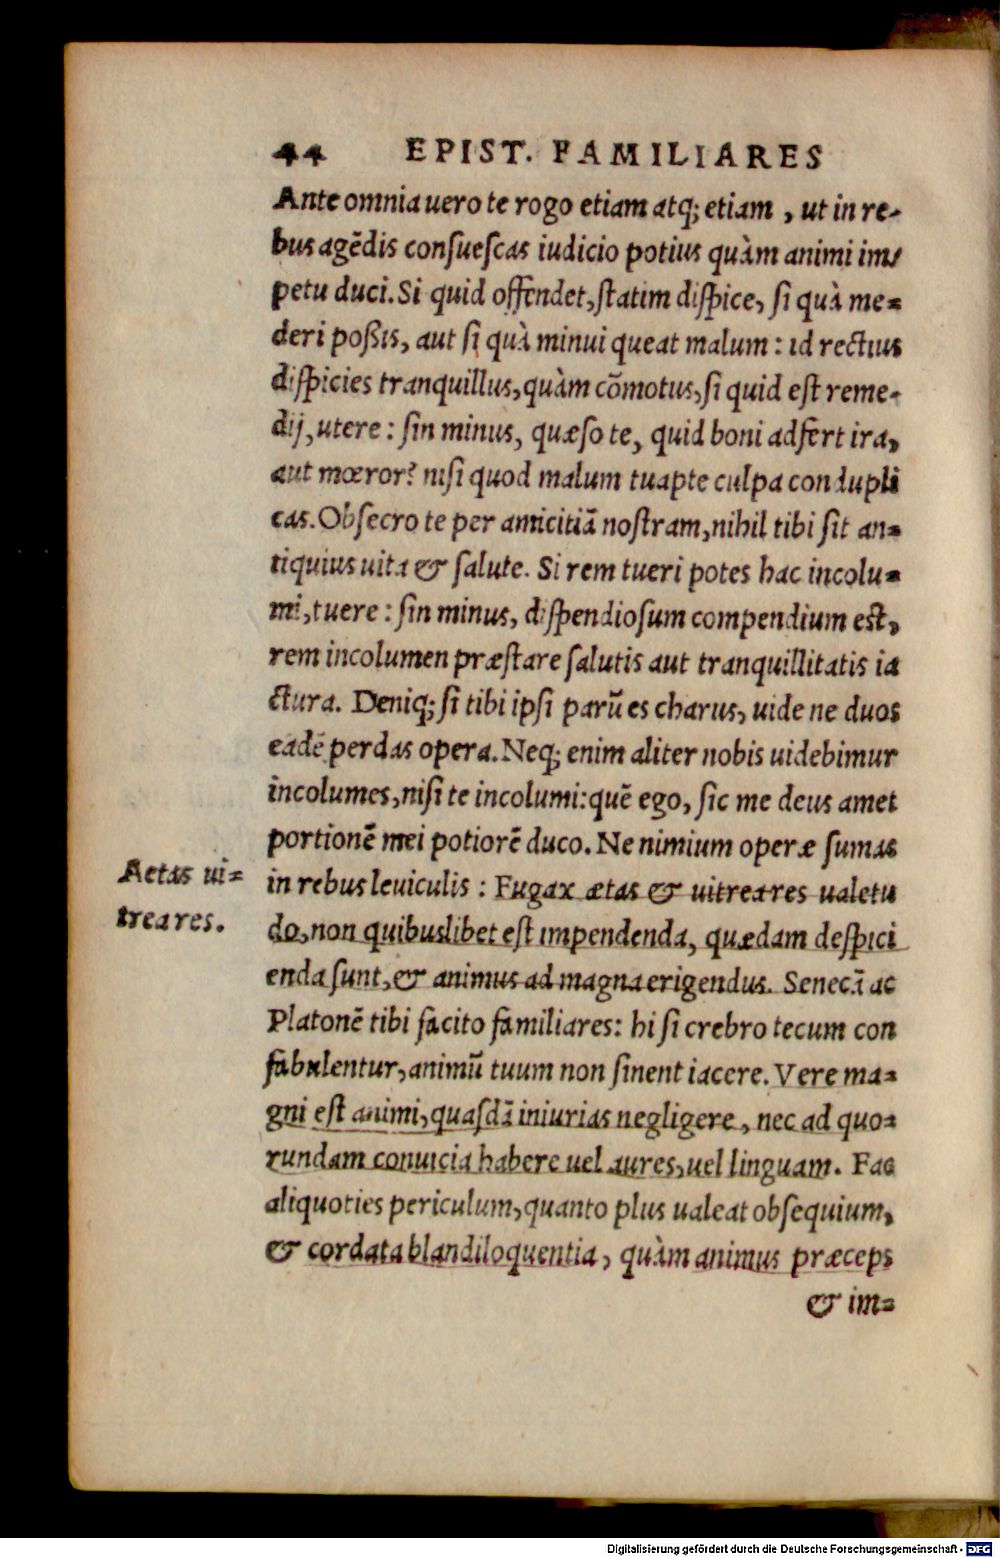 44 EPIST. FAMILIARES
Ante omnia uero te rogo etiam atq; etiam , ut in re-
bus agẽdis consuescas iudicio potius quàm animi im-
petu duci. Si quid offendet, statim dispice, si quà me=
deri poßis, aut si quà minui queat malum : id rectius
dispicies tranquillus, quàm cõmotus, si quid est reme-
dij, utere : sin minus, quæso te, quid boni adfert ira,
aut mœror? nisi quod malum tuapte culpa condupli
cas. Obsecro te per amicitiã nostram, nihil tibi sit an=
tiquius uita & salute. Si rem tueri potes hac incolu=
mi, tuere : sin minus, dispendiosum compendium est,
rem incolumen præstare salutis aut tranquillitatis ia
ctura. Deniq; si tibi ipsi parũ es charus, uide ne duos
eadẽ perdas opera. Neq; enim aliter nobis uidebimur
incolumes, nisi te incolumi: quẽ ego, sic me deus amet
portionẽ mei potiorẽ duco. Ne nimium operæ sumas
Aetas ui=
trea res.
in rebus leuiculis : Fugax ætas & uitrea res ualetu
do, non quibuslibet est impendenda, quædam despici
enda sunt, & animus ad magna erigendus. Senecã ac
Platonẽ tibi facito familiares: hi si crebro tecum con
fabulentur, animũ tuum non sinent iacere. Vere ma=
gni est animi, quasdã iniurias negligere, nec ad quo=
rundam conuicia habere uel aures, uel linguam. Fac
aliquoties periculum, quanto plus ualeat obsequium,
& cordata blandiloquentia, quàm animus præceps
& im=
Digitalisierung gefördert durch die Deutsche Forschungsgemeinschaft - DFG